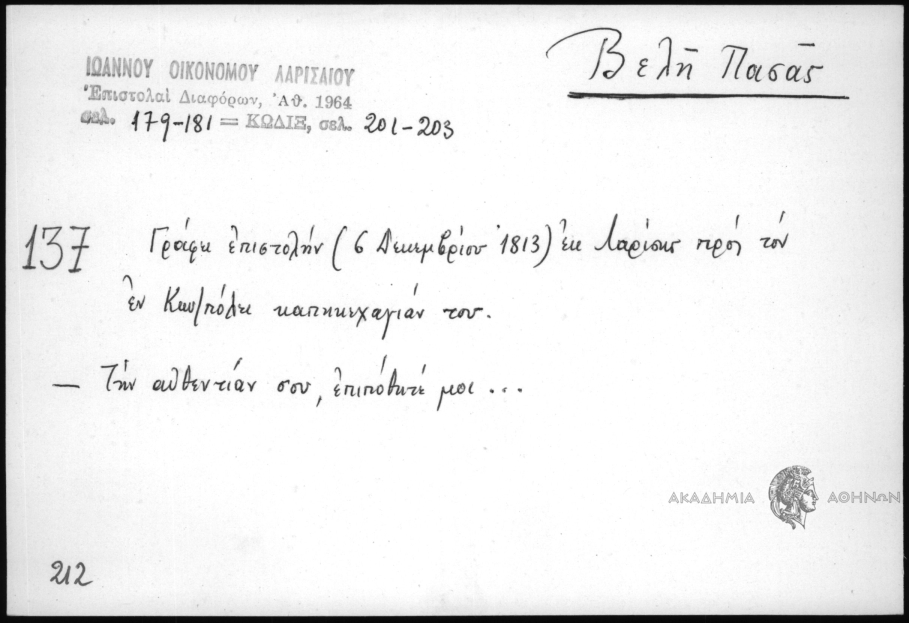 Βελῆ Πασᾶς
ΙΩΑΝΝΟΥ ΟΙΚΟΝΟΜΟΥ ΛΑΡΙΣΑΙΟΥ
Ἐπιστολαὶ Διαφόρων, Ἀθ. 1964
σελ. 179-181 = ΚΩΔΙΞ, σελ. 201-203
137 Γράφει ἐπιστολήν (6 Δεκεμβρίου 1813) ἐκ Λαρίσης πρός τόν
ἐν Κων/πόλει καπηκεχαγιάν του.
— Τήν αὐθεντίαν σου, ἐπιπόθητέ μοι ...
ΑΚΑΔΗΜΙΑ ΑΘΗΝΩΝ
212